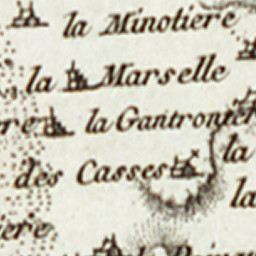 la Minotiere
la Marselle
re la Gantronier
la
des Casses
la
iere